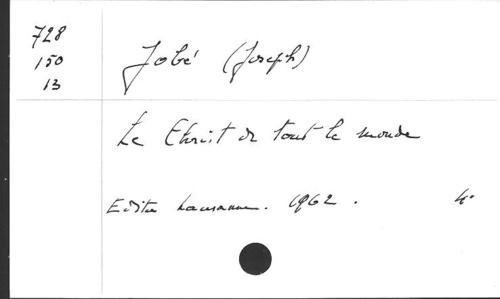 728
150
13
Jobé (Joseph)
Le Christ de tout le monde
Edita Lausanne. 1962. 4°